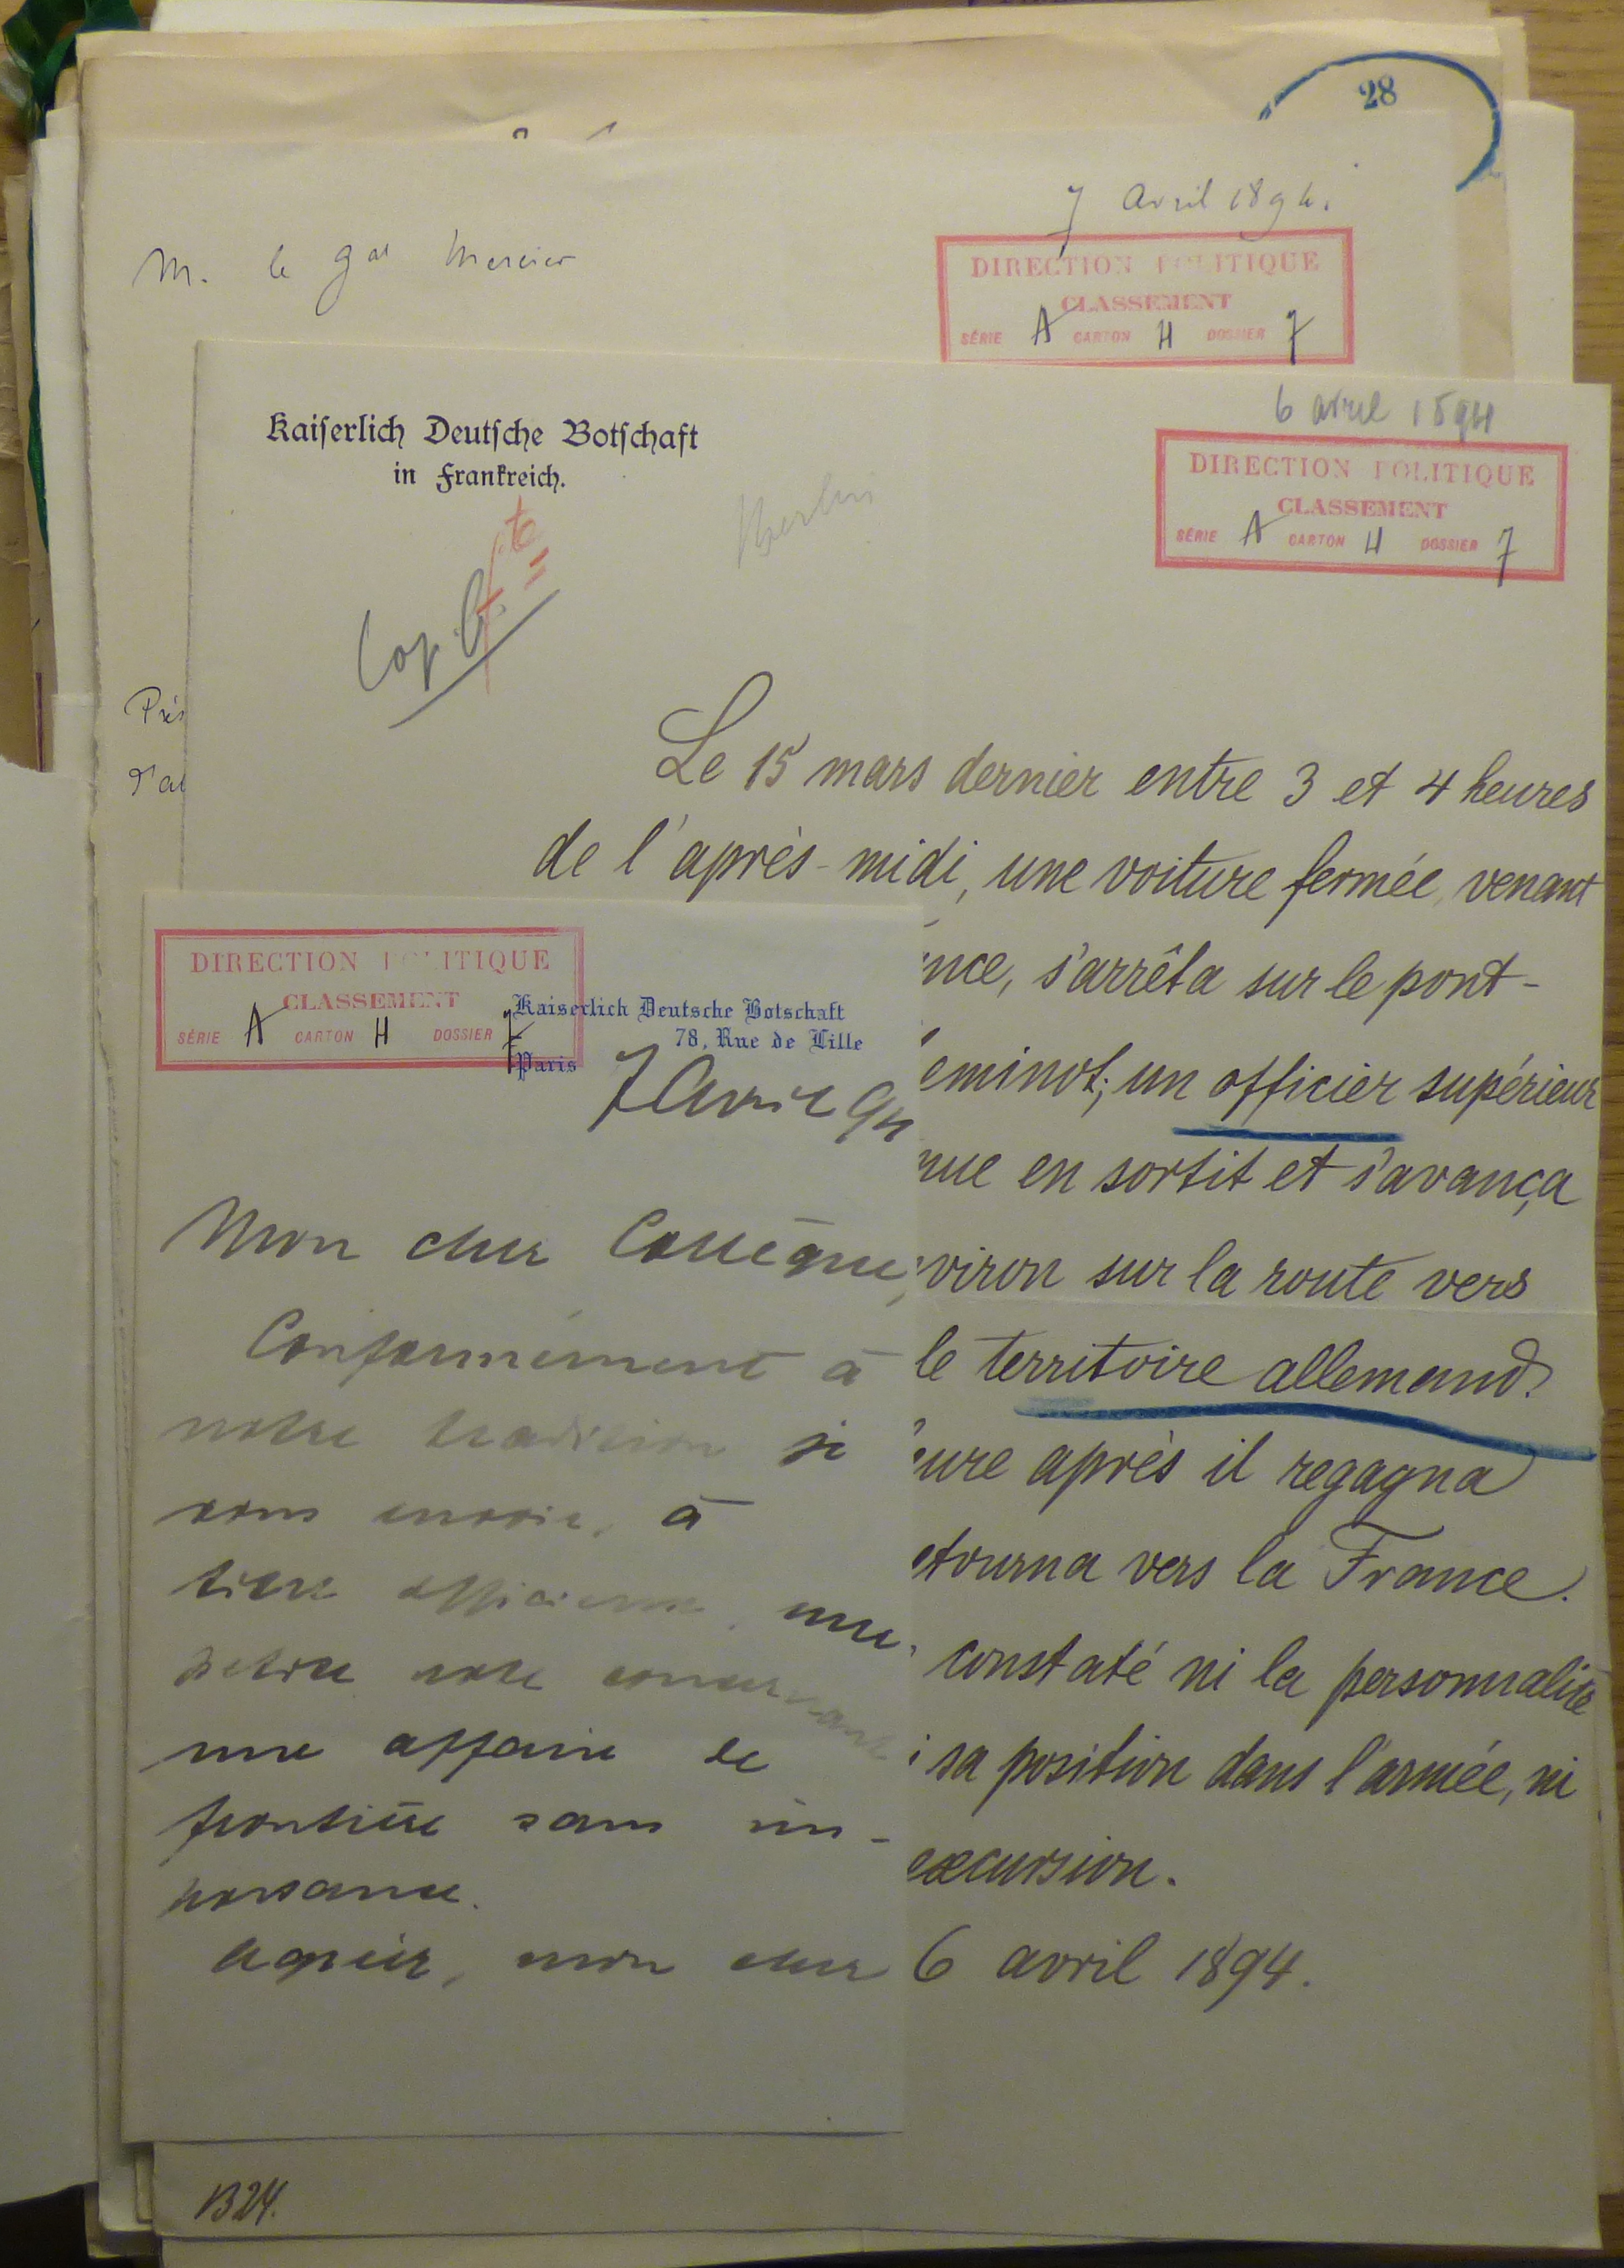 28
7 avril 1894.
M. le gal Mercier
DIRECTION POLITIQUE
CLASSEMENT
SÉRIE A CARTON H DOSSIER 7
6 avril 1894
Kaiserlich Deutsche Botschaft
in Frankreich.
DIRECTION POLITIQUE
CLASSEMENT
SÉRIE A CARTON H DOSSIER 7
Berlin
Prés
Le 15 mars dernier entre 3 et 4 heures
de l'après-midi, une voiture fermée, venant
nce, s'arrêta sur le pont-
eminot; un officier supérieur
nue en sortit et s'avança
viron sur la route vers
le territoire allemand.
eure après il regagna
etourna vers la France.
constaté ni la personnalité
i sa position dans l'armée, ni
excursion.
6 avril 1894.
DIRECTION POLITIQUE
CLASSEMENT
SÉRIE A CARTON H DOSSIER 7
Kaiserlich Deutsche Botschaft
78, Rue de Lille
Paris
7 Avril 94
Mon cher Collègue,
Conformément à
notre tradition je
vous envoie, à
titre officieux, une
petite note concernant
une affaire de
frontière sans im-
portance.
Agréez, mon cher
1324.